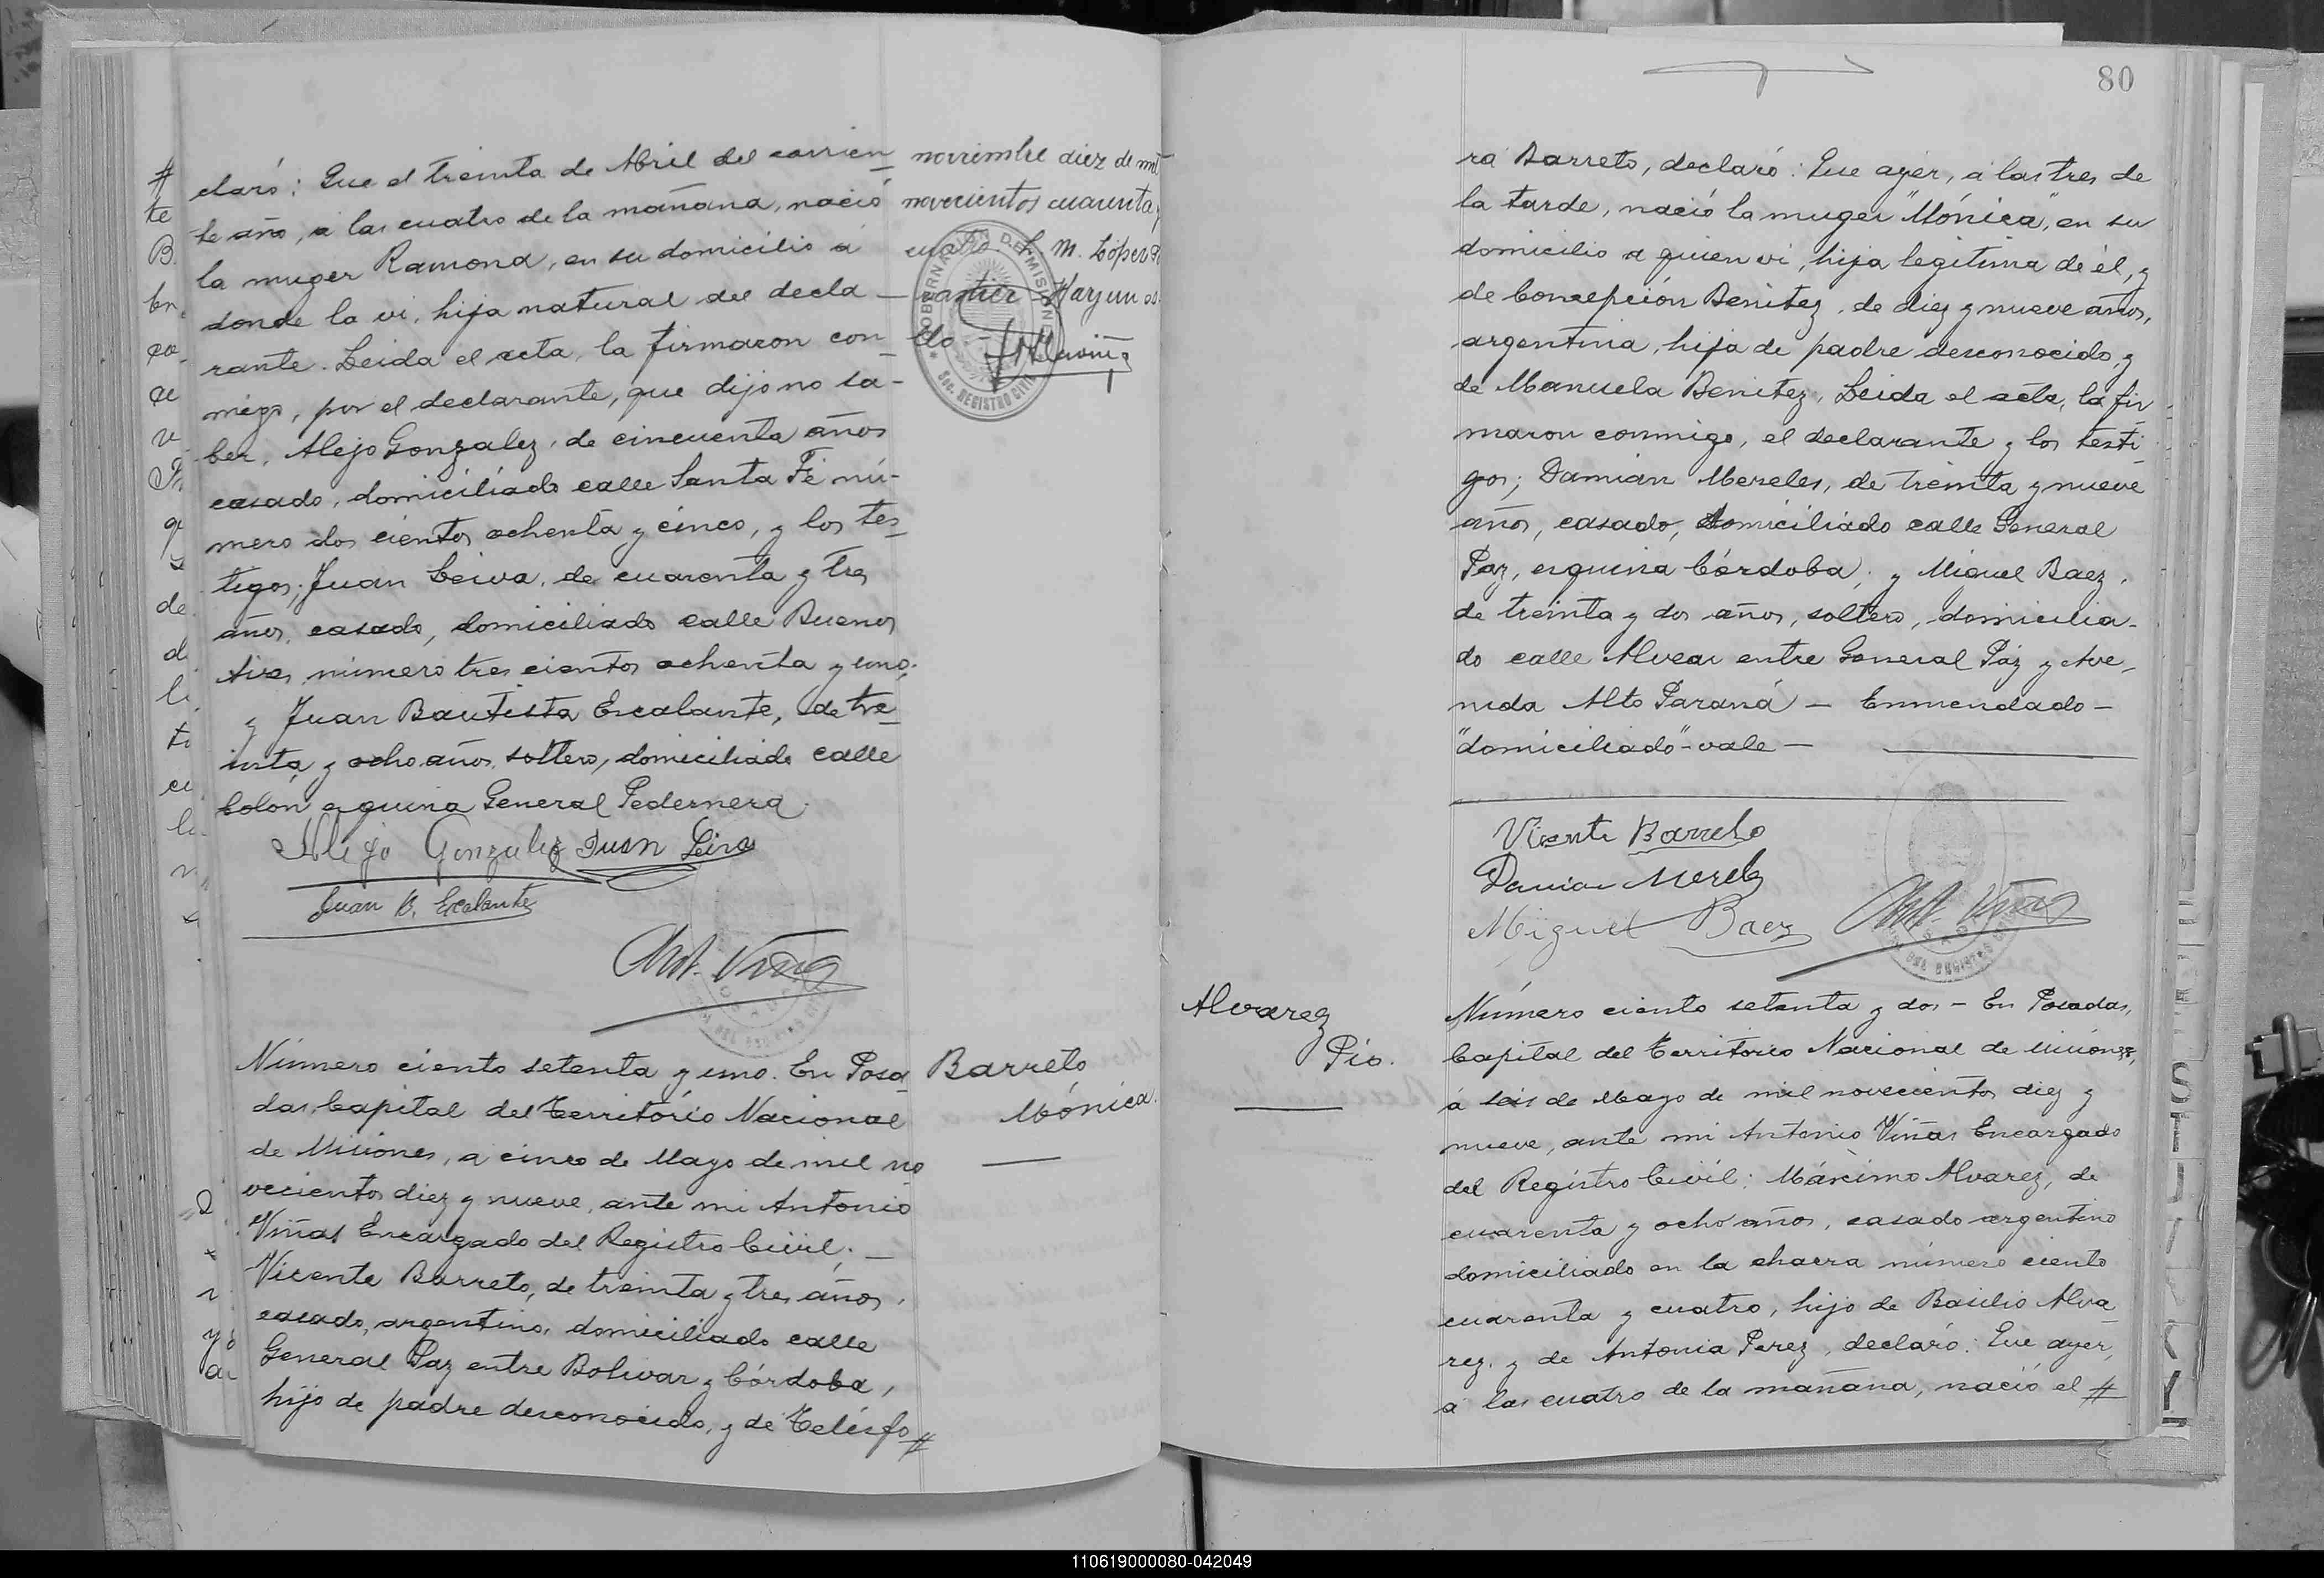 claró: Que el treinta de Abril del corrien
te año, a las cuatro de la mañana, nació
la muger Ramona, en su domicilio á
donde la vi, hija natural del decla
rante. Leida el acta, la firmaron con
migo, por el declarante, que dijo no sa-
ber, Alejo Gonzalez, de cincuenta años
casado, domiciliado calle Santa Fé nú-
mero dos cientos ochenta y cinco, y los tes
tigos; Juan Leiva, de cuarenta y tres
años, casado, domiciliado calle Buenos
Aires, número tres cientos ochenta y uno;
y Juan Bautista Escalante, de tre
inta y ocho años, soltero, domiciliado calle
Colón esquina General Pedernera.
Alejo Gonzalez Juan Leiva
Juan B. Escalante
Ant. Viñas
noviembre diez de mil
novecientos cuarenta y
cuatro M. López
GOBERNACION DE MISIONES
SEC. REGISTRO CIVIL
Número ciento setenta y uno. En Posa
das, Capital del Territorio Nacional
de Misiones, a cinco de Mayo de mil no
vecientos diez y nueve, ante mi Antonio
Viñas Encargado del Registro Civil; —
Vicente Barreto, de treinta y tres años,
casado, argentino, domiciliado calle
General Paz entre Bolivar y Córdoba,
hijo de padre desconocido, y de Telésfo #
Barreto
Mónica.
80
ra Barreto, declaró: Que ayer, a las tres de
la tarde, nació la muger "Mónica", en su
domicilio a quien vi, hija legitima de él, y
de Concepción Benitez, de diez y nueve años,
argentina, hija de padre desconocido, y
de Manuela Benitez. Leida el acta, la fir
maron conmigo, el declarante y los testi
gos; Damián Mereles, de treinta y nueve
años, casado, domiciliado calle General
Paz, esquina Córdoba; y Miguel Baez,
de treinta y dos años, soltero, domicilia-
do calle Alvear entre General Paz y Ave-
nida Alto Paraná — Enmendado —
"domiciliado" - vale —
Vicente Barreto
Damian Mereles
Miguel Baez Ant. Viñas
Alvarez
Pío.
Número ciento setenta y dos — En Posadas,
Capital del Territorio Nacional de Misiones,
á seis de Mayo de mil novecientos diez y
nueve, ante mi Antonio Viñas Encargado
del Registro Civil; Máximo Alvarez, de
cuarenta y ocho años, casado argentino
domiciliado en la chacra número ciento
cuarenta y cuatro, hijo de Basilio Alva
rez, y de Antonia Perez, declaró: Que ayer,
a las cuatro de la mañana, nació el #
110619000080-042049